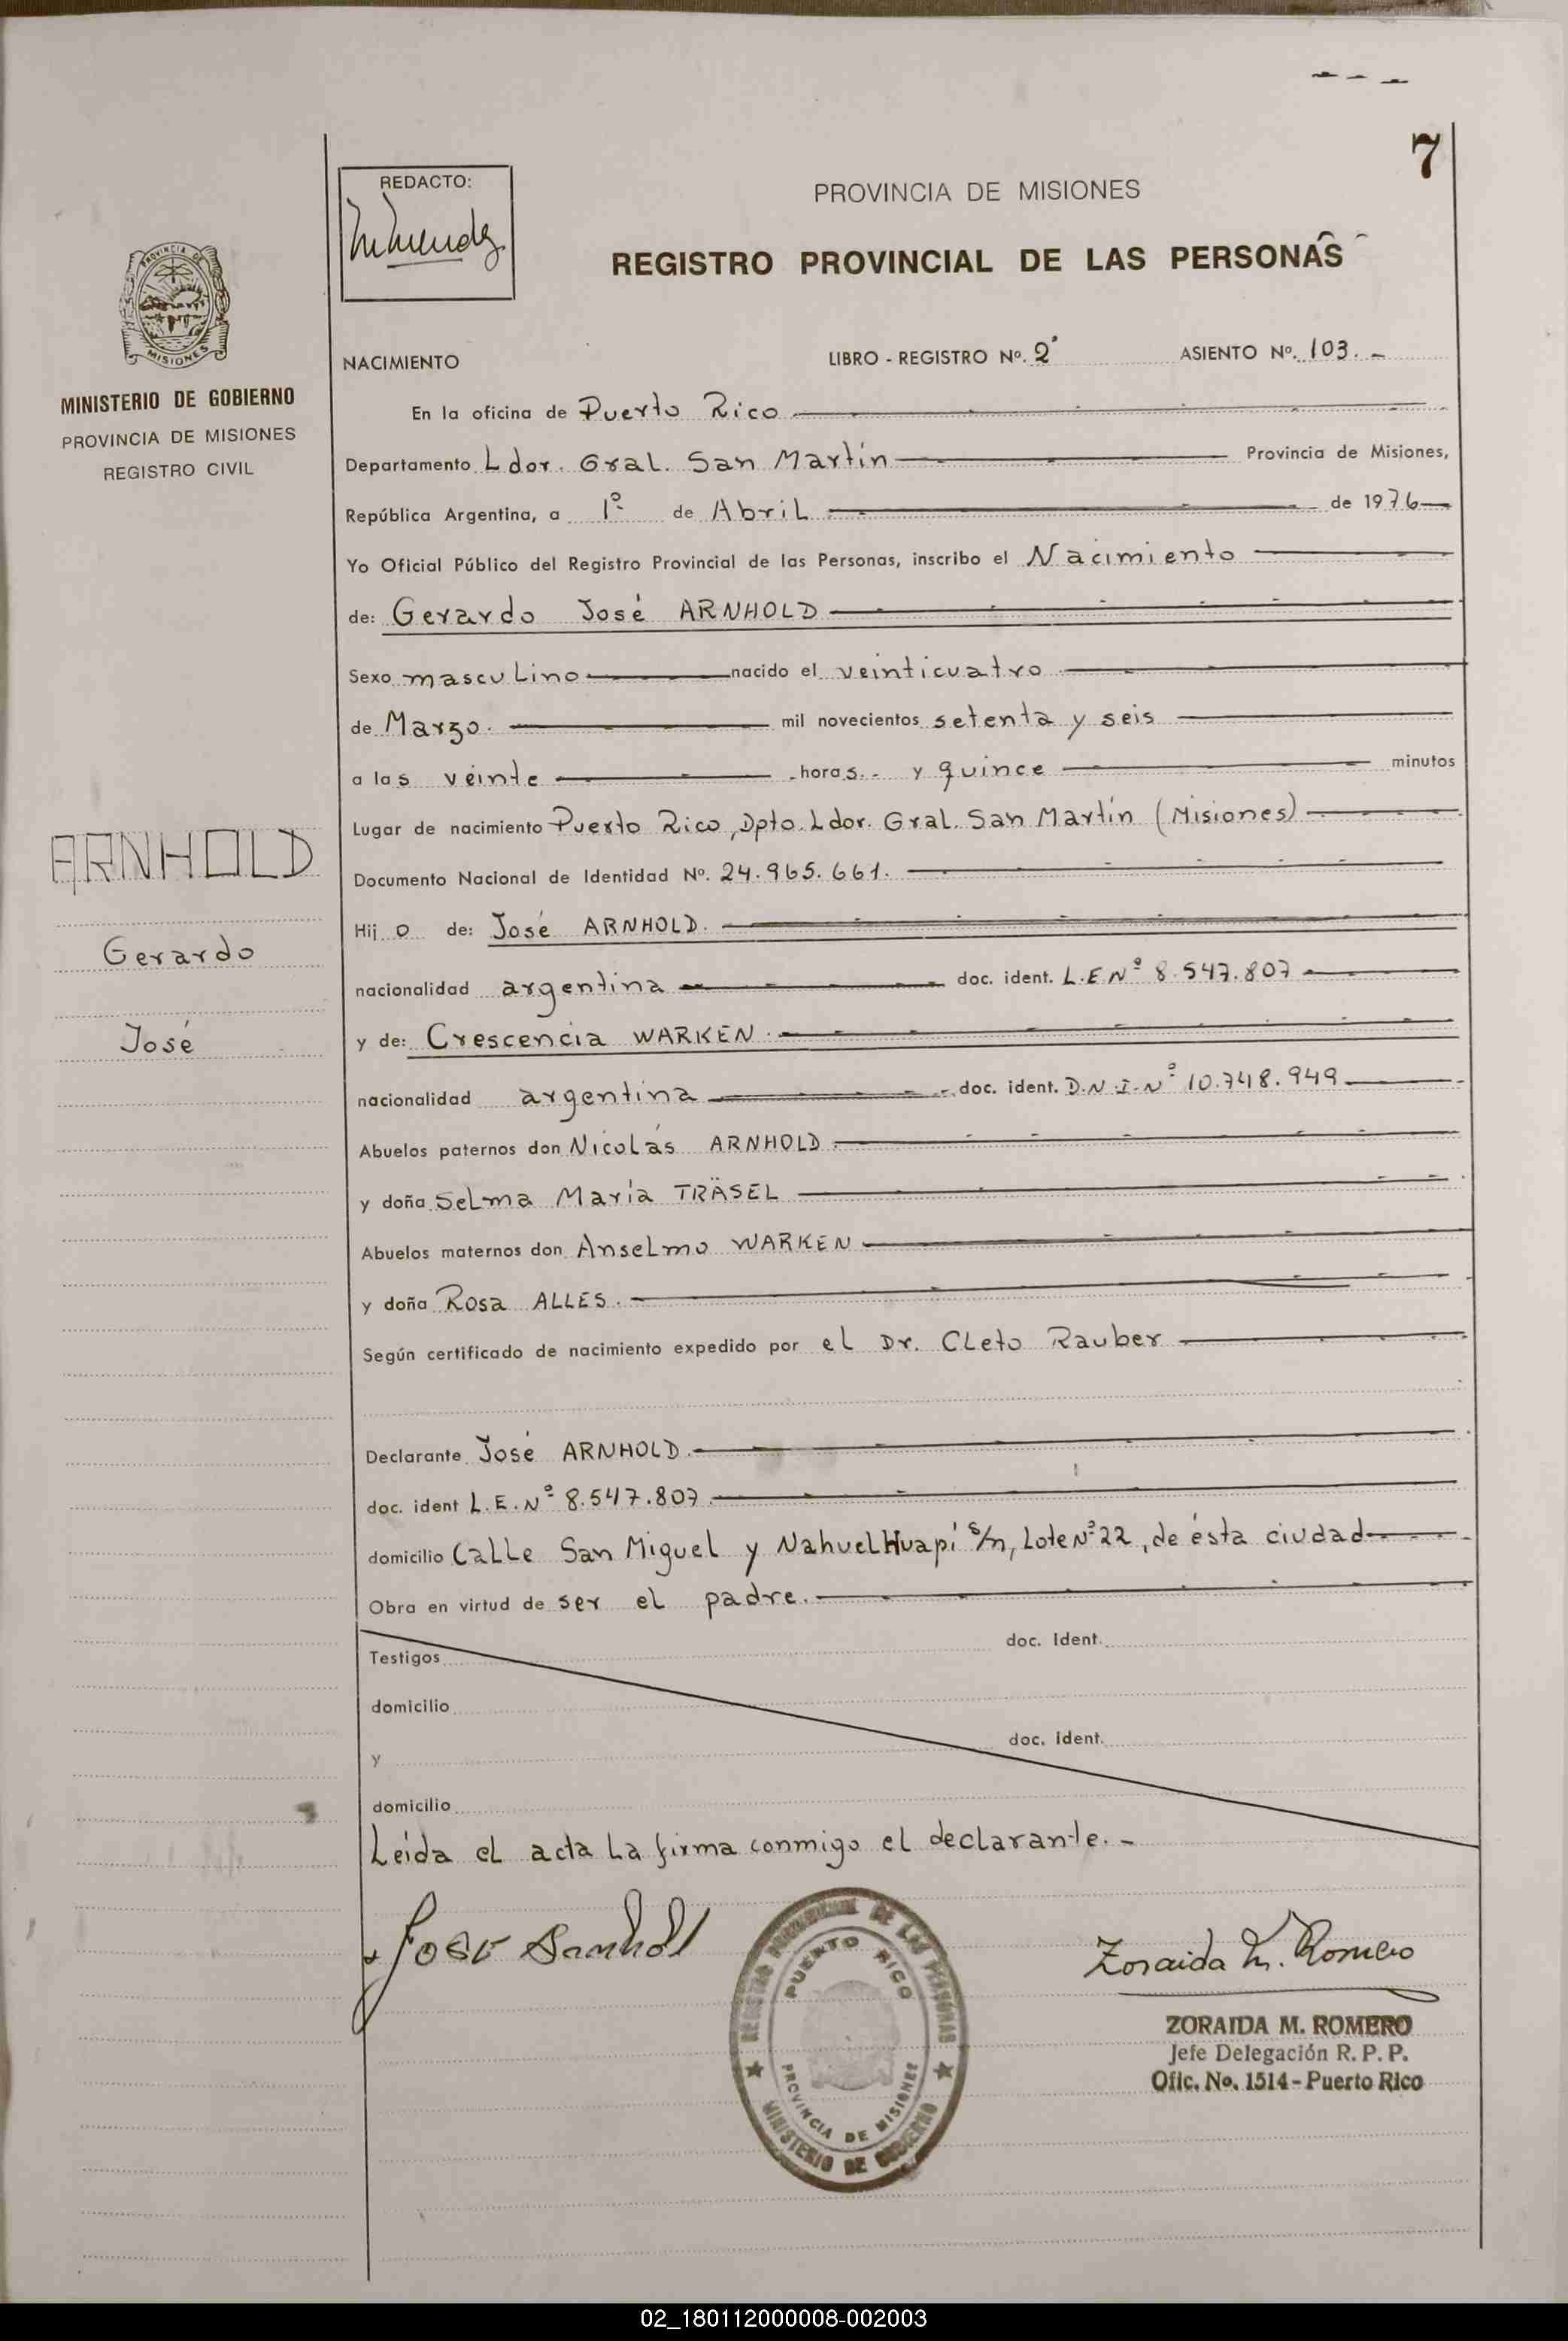 7
REDACTO:
PROVINCIA DE MISIONES
REGISTRO PROVINCIAL DE LAS PERSONAS
PROVINCIA DE
MISIONES
MINISTERIO DE GOBIERNO
PROVINCIA DE MISIONES
REGISTRO CIVIL
NACIMIENTO LIBRO - REGISTRO Nº. 2º ASIENTO Nº. 103.-
En la oficina de Puerto Rico
Departamento Ldor. Gral. San Martín Provincia de Misiones,
República Argentina, a 1º de Abril de 1976
Yo Oficial Público del Registro Provincial de las Personas, inscribo el Nacimiento
de: Gerardo José ARNHOLD
Sexo masculino nacido el veinticuatro
de Marzo. mil novecientos setenta y seis
a las veinte horas.- y quince minutos
Lugar de nacimiento Puerto Rico, Dpto. Ldor. Gral. San Martín (Misiones)
ARNHOLD
Documento Nacional de Identidad Nº. 24.965.661.
Hijo de: José ARNHOLD.
Gerardo
nacionalidad argentina doc. ident. L.E Nº 8.547.807
José
y de: Crescencia WARKEN.
nacionalidad argentina doc. ident. D.N.I-Nº 10.748.949
Abuelos paternos don Nicolás ARNHOLD
y doña Selma María TRÄSEL
Abuelos maternos don Anselmo WARKEN
y doña Rosa ALLES.
Según certificado de nacimiento expedido por el Dr. Cleto Rauber
Declarante José ARNHOLD.
doc. ident L.E. Nº 8.547.807.
domicilio Calle San Miguel y Nahuel Huapí s/n, Lote Nº 22, de ésta ciudad
Obra en virtud de ser el padre.
Testigos doc. Ident.
domicilio
y doc. Ident.
domicilio
Leída el acta la firma conmigo el declarante.-
José Arnhold
Zoraida M. Romero
REGISTRO PROVINCIAL DE LAS PERSONAS
PUERTO RICO
PROVINCIA DE MISIONES
MINISTERIO DE GOBIERNO
ZORAIDA M. ROMERO
Jefe Delegación R. P. P.
Ofic. No. 1514 - Puerto Rico
02_180112000008-002003